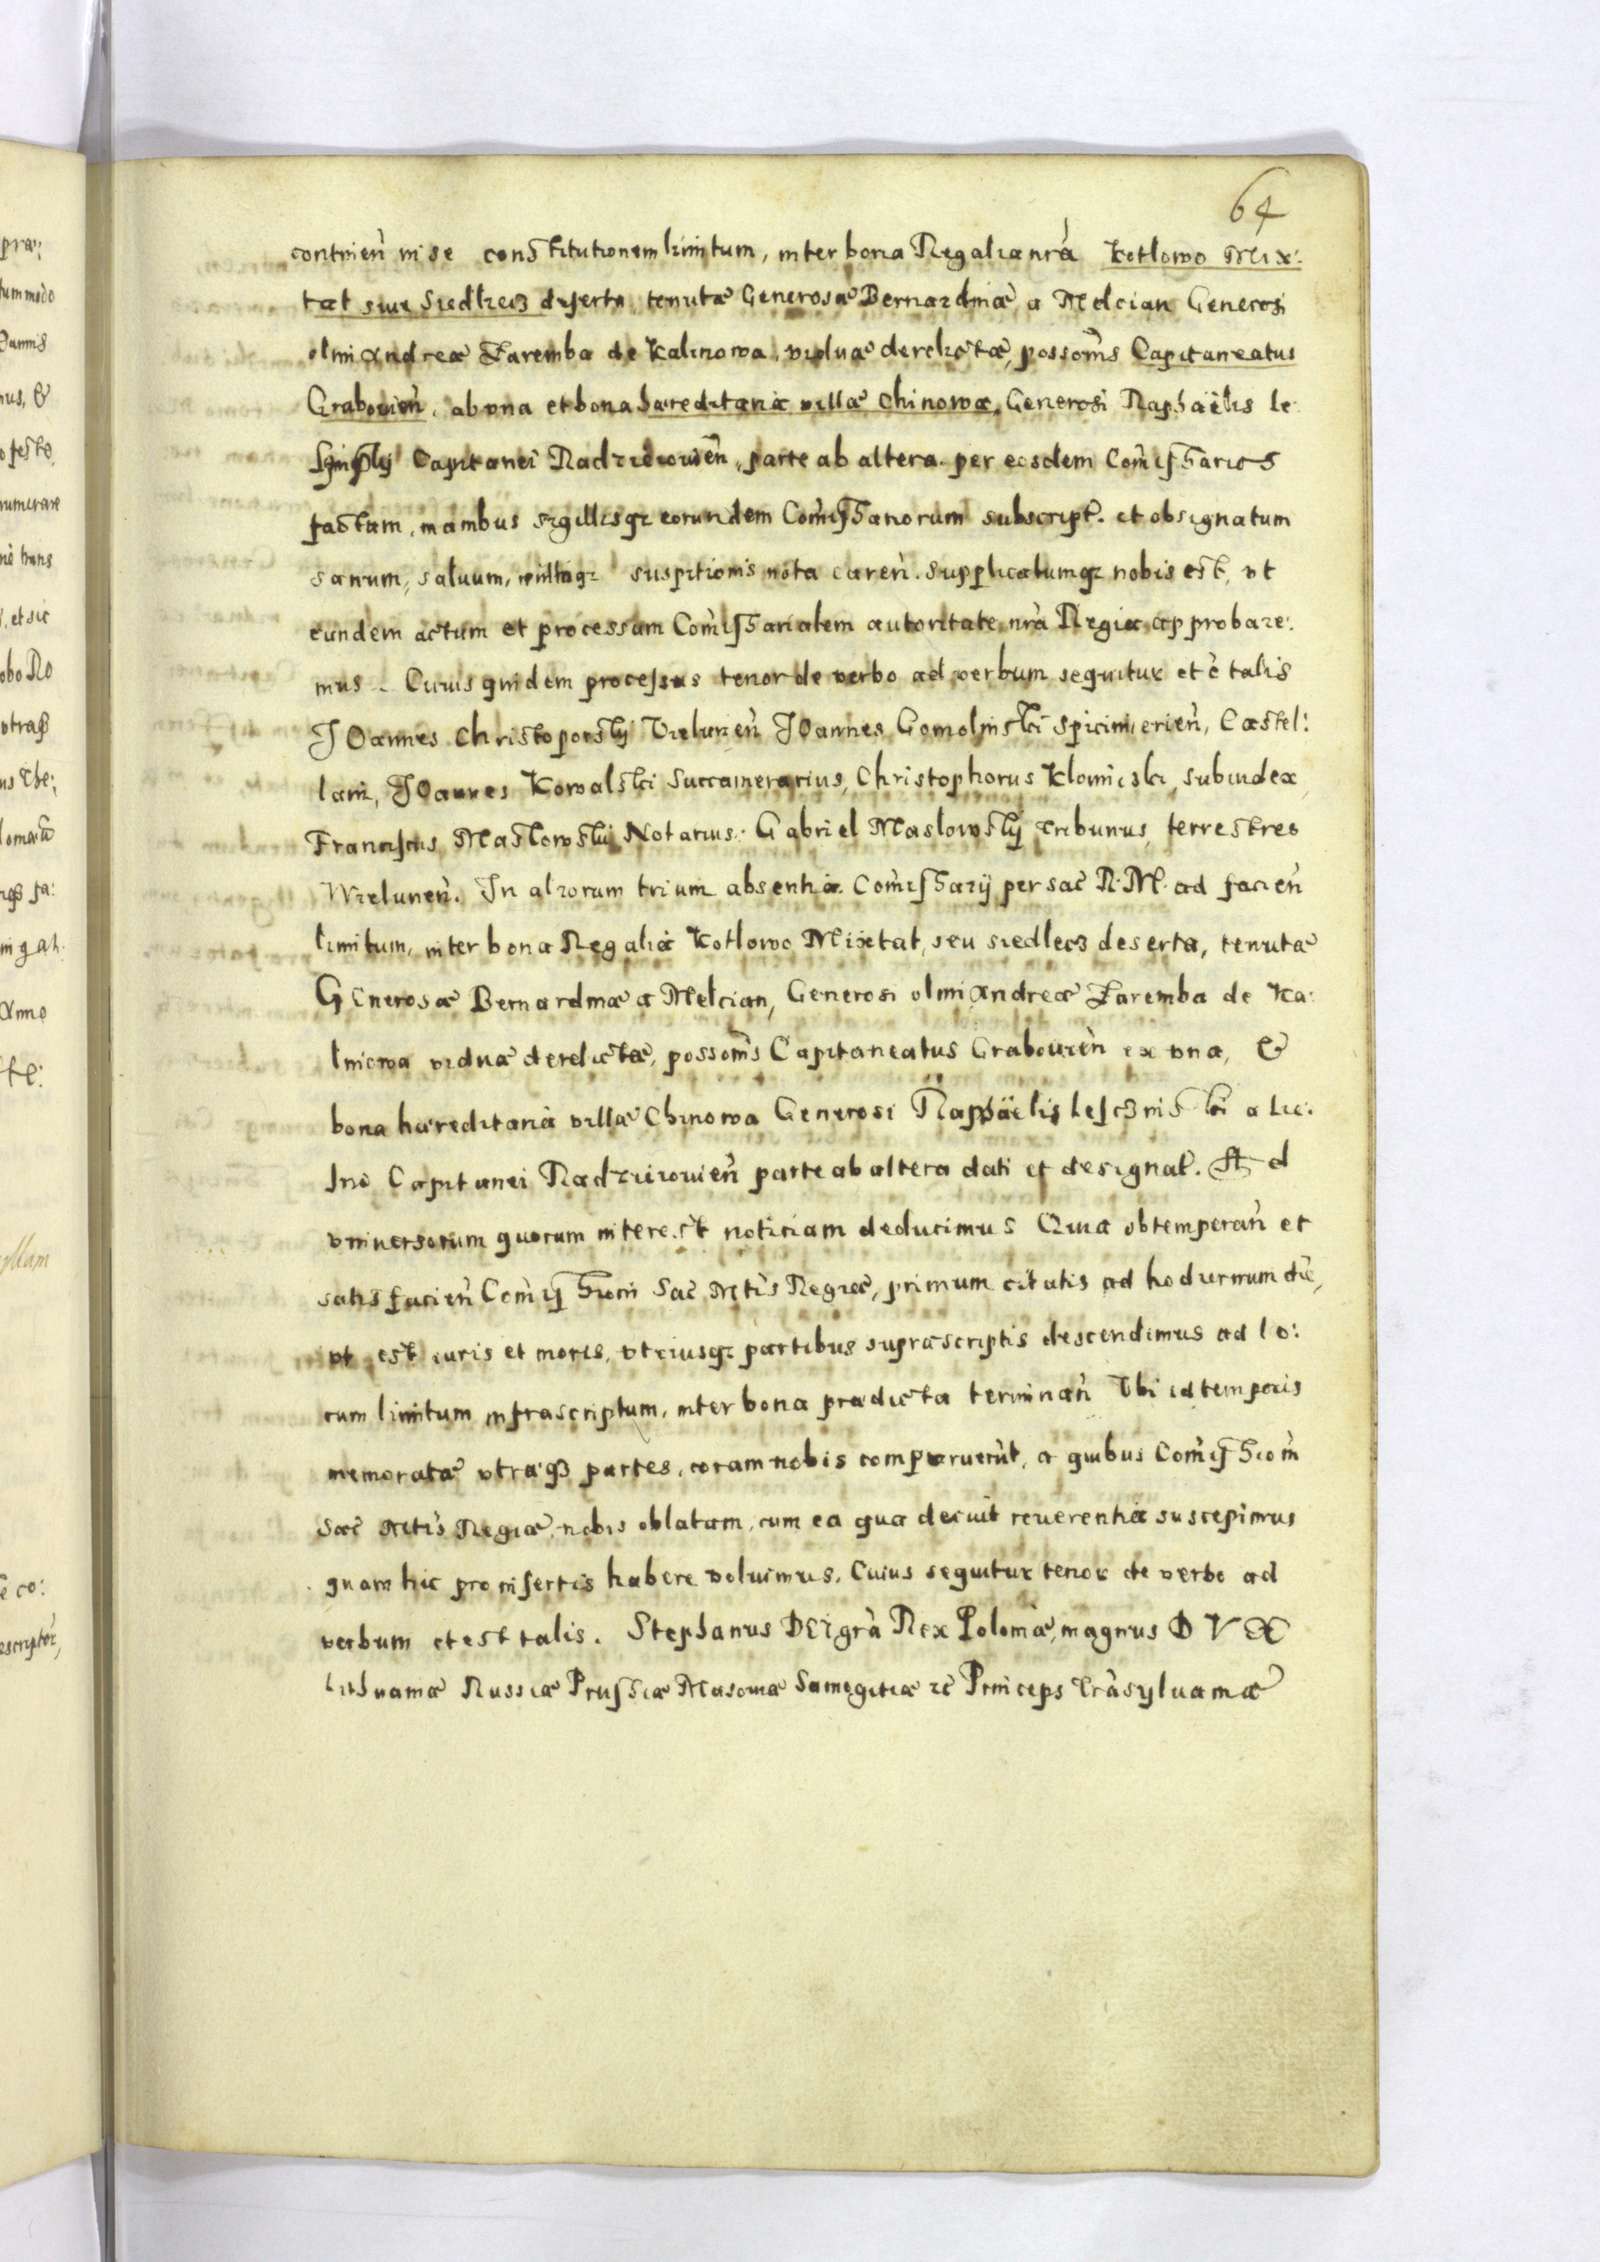 64
continen̄ in se constitutionem limitum, inter bona Regalia nrà Kotlowo Mix:
tat siue Siedlecz deserta tenutæ Generosæ Bernardinæ a Melcian Generosi
olim Andreæ Zaremba de Kalinowa, viduæ derelictæ, possom̄s Capitaneatus
Grabouien̄. ab vna et bona hæreditaria villæ Chinowa, Generosi Raphaëlis le
Capitanei Radzieiouien̄, parte ab altera per eosdem Com̄issarios
factam, manibus sigillisqz eorundem Com̄issariorum subscript. et obsignatum
sanum, saluum, nullaqz suspitionis nota caren̄. Supplicatumqz nobis est, vt
eundem actum et processum Com̄issarialem autoritate nrà Regia approbare:
mus. Cuius quidem processus tenor de verbo ad verbum sequitur et ē talis
JOannes Christoporsky Vielunen̄ JOannes Gomolinski Spicimirien̄, Castel:
lani, JOannes Kowalski Succamerarius, Christophorus Klomicski, subiudex,
Franciscus Maslowsky Notarius. Gabriel Maslowsky Tribunus, terrestres
Wielunen̄. In aliorum trium absentia Com̄issarij per sac̄ R. M. ad facien̄
limitum, inter bona Regalia Kotlowo Mixtat, seu siedlecz deserta, tenutæ
Generosæ Bernardinæ a Melcian, Generosi olim Andreæ Zaremba de Ka:
linowa viduæ derelictæ, possom̄s Capitaneatus Grabouien̄ ex vna, &
bona hæreditaria villæ Chinowa Generosi Raphaëlis Lesczinski a Lie:
Capitanei Radzieiouien̄ parte ab altera dati et designat. Ad
vniuersorum quorum interest noticiam deducimus Quia obtemperan̄ et
satisfacien̄ Com̄issioni Sac̄ Mtis Regiæ, primum citatis ad hodiernum diē,
vt est iuris et moris, vtriusqz partibus suprascriptis descendimus ad lo:
cum limitum infrascriptum, inter bona prædicta terminan̄ Vbi id temporis
memoratæ vtræqз partes, coram nobis comparuerūt, a quibus Com̄issiom̄
Sac̄ Mtis Regiæ, nobis oblatam, cum ea qua decuit reuerentia suscepimus
quam hic pro insertis habere voluimus. Cuius sequitur tenor de verbo ad
verbum et est talis. Stephanus DEI grà Rex Poloniæ, magnus DVX
Lithuaniæ Russiæ Prussiæ Masoviæ Samogitiæ zc̄ Princeps Trāsyluaniæ